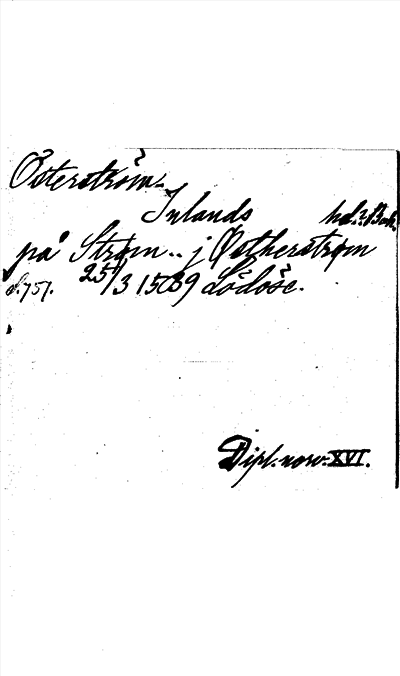 Österström
Inlands hd.? Boh.
på Strøm.. j Østherstrøm
S. 751. 25/3 1509 Lödöse.
Dipl. norv. XVI.